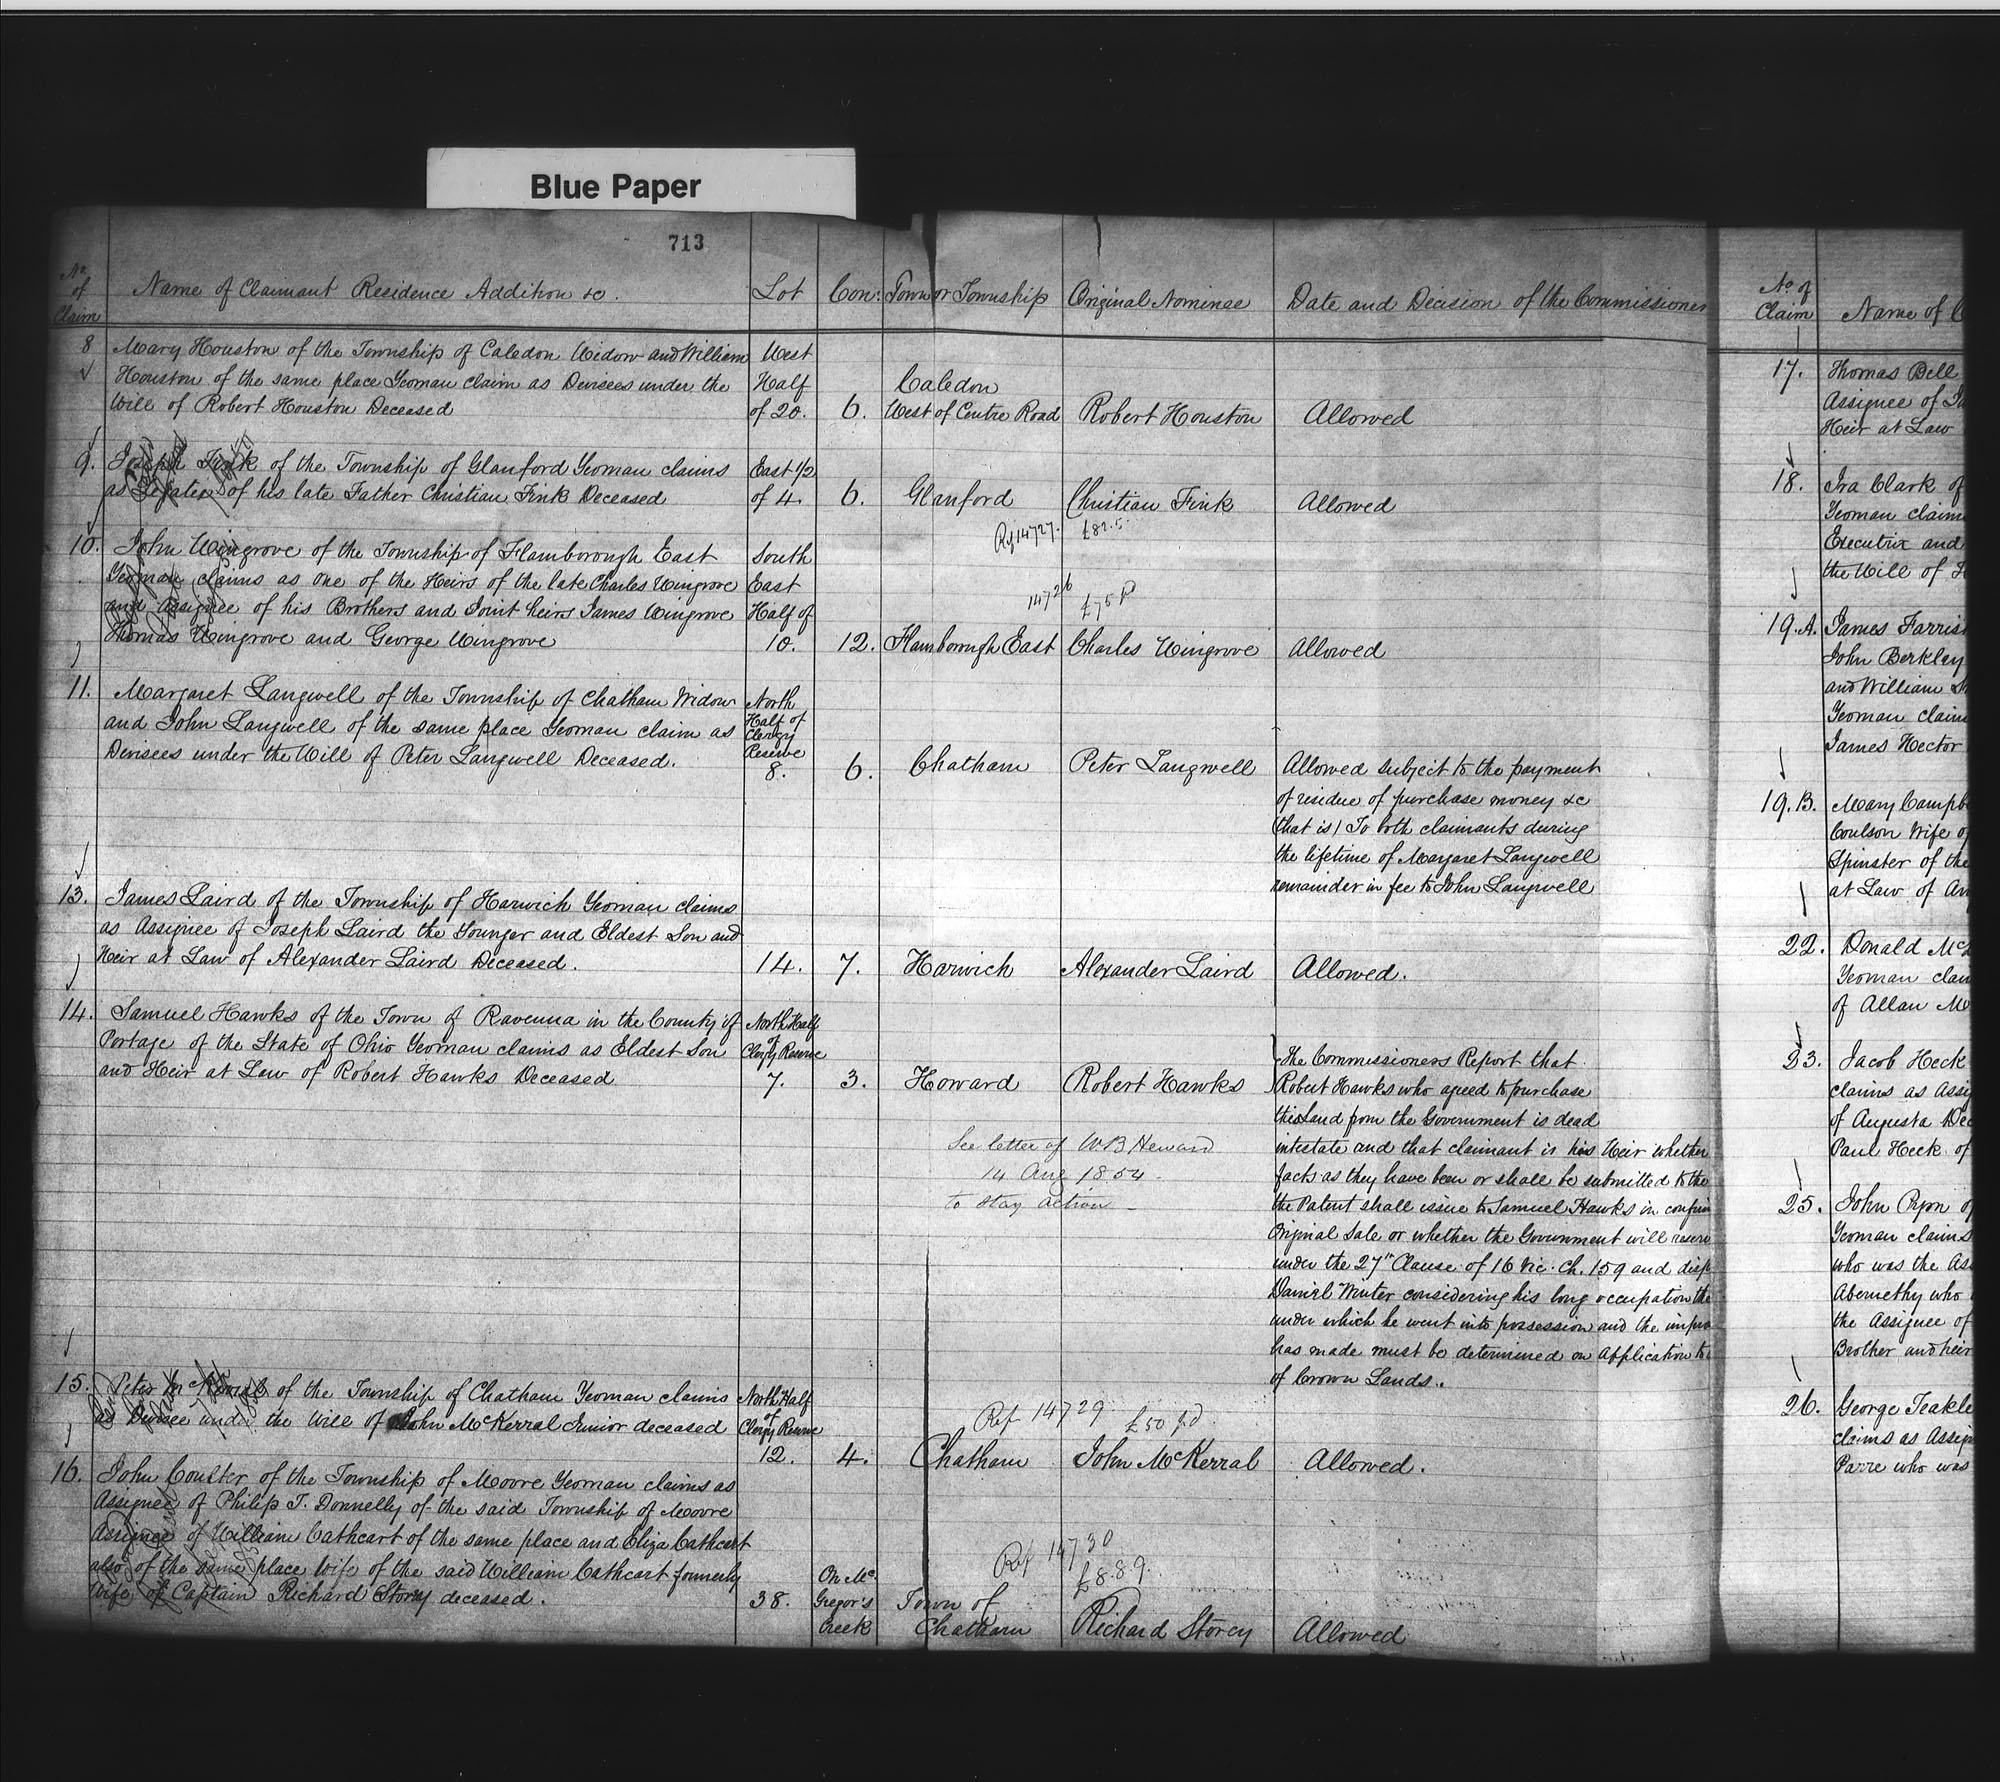 Blue Paper
713
No. of Claim
Name of Claimant Residence Addition &c.
Lot
Con:
Town or Township
Original Nominee
Date and Decision of the Commissioner
8
Mary Houston of the Township of Caledon Widow and William
Houston of the same place Yeoman claim as Devisees under the
Will of Robert Houston Deceased
West
Half
of 20.
6.
Caledon
West of Centre Road
Robert Houston
Allowed
9.
Joseph Fink of the Township of Glanford Yeoman claims
as Legatee of his late Father Christian Fink Deceased
East 1/2
of 4.
6.
Glanford
Christian Fink
Allowed
14727.
£82.5.
10.
John Wingrove of the Township of Flamborough East
Yeoman claims as one of the Heirs of the late Charles Wingrove
and Assignee of his Brothers and Joint heirs James Wingrove
Thomas Wingrove and George Wingrove
South
East
Half of
10.
12.
14726
£75
Flamborough East
Charles Wingrove
Allowed
11.
Margaret Langwell of the Township of Chatham Widow
and John Langwell of the same place Yeoman claim as
Devisees under the Will of Peter Langwell Deceased.
North
Half of
Clergy
Reserve
8.
6.
Chatham
Peter Langwell
Allowed subject to the payment
of residue of purchase money &c
(that is) To both claimants during
the lifetime of Margaret Langwell
remainder in fee to John Langwell
13.
James Laird of the Township of Harwich Yeoman claims
as Assignee of Joseph Laird the Younger and Eldest Son and
Heir at Law of Alexander Laird Deceased.
14.
7.
Harwich
Alexander Laird
Allowed.
14.
Samuel Hawks of the Town of Ravenna in the County of
Portage of the State of Ohio Yeoman claims as Eldest Son
and Heir at Law of Robert Hawks Deceased
North Half
of
Clergy Reserve
7.
3.
Howard
Robert Hawks
See letter of W B Heward
14 Aug 1854.
to stay action
The Commissioners Report that
Robert Hawks who agreed to purchase
this Land from the Government is dead
intestate and that claimant is his Heir whether
facts as they have been or shall be submitted to the
the Patent shall issue to Samuel Hawks in
Original Sale or whether the Government will
under the 27th Clause of 16 Vic. Ch. 159 and
Daniel Winter considering his long occupation the
under which he went into possession and the
has made must be determined on Application to
of Crown Lands.
15.
Peter McKerral of the Township of Chatham Yeoman claims
as Devisee under the Will of John McKerral Junior deceased
North Half
of
Clergy Reserve
12.
4.
Ref 14729
£50 pd
Chatham
John McKerral
Allowed.
16.
John Coulter of the Township of Moore Yeoman claims as
Assignee of Philip T. Donnelly of the said Township of Moore
Assignee of William Cathcart of the same place and Eliza Cathcart
also of the same place Wife of the said William Cathcart formerly
Wife of Captain Richard Storey deceased.
38.
On Mc
Gregor's
Creek
Ref 14730
£8.8.9.
Town of
Chatham
Richard Storey
Allowed
No of
Claim
Name of
17.
Thomas Bell
Assignee of
Heir at Law
18.
Ira Clark of
Yeoman
Executrix and
the Will of
19.A.
James
John Berkley
and William
Yeoman
James Hector
19.B.
Mary
Coulson Wife
Spinster of the
at Law of
22.
Donald
Yeoman
of Allan
23.
Jacob Heck
claims as
of Augusta
Paul Heck of
25.
John
Yeoman claims
who was the
Abernethy who
the Assignee of
Brother and heir
26.
George
claims as
who was